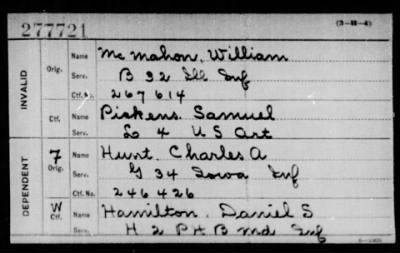 277721 (3-H-4)
INVALID
Orig. Name McMahon, William
Serv. B 32 Ill Inf
Ctf. No. 267614
Ctf. Name Pickens, Samuel
Serv. L 4 U S Art
DEPENDENT
7 Orig. Name Hunt, Charles A
G 34 Iowa Inf
Ctf. No. 246426
W Ctf. Name Hamilton, Daniel S
Serv. H 2 P H B Md Inf